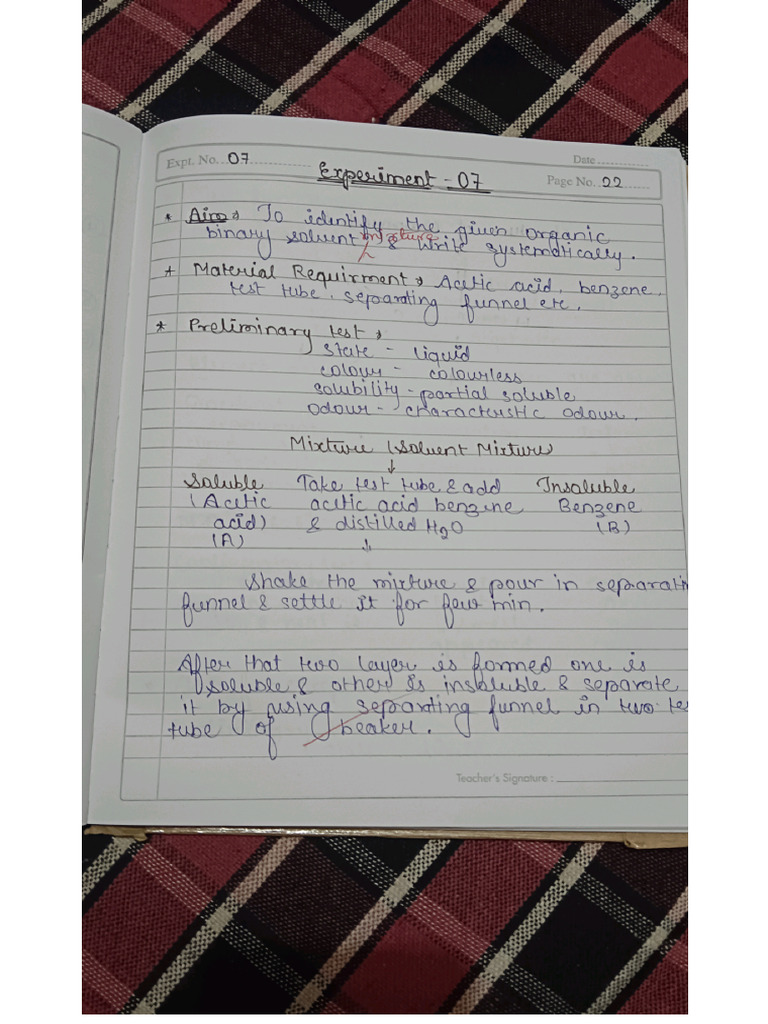 Expt. No. 07
Date
Experiment - 07
Page No. 22
* Aim → To identify the given organic
binary solvent mixture & write systematically.
* Material Requirment → Acetic acid, benzene,
test tube, separating funnel etc.
* Preliminary test →
state - liquid
colour - colourless
solubility - partial soluble
odour - characteristic odour.
Mixture (Solvent Mixture)
↓
Soluble Take test tube & add Insoluble
(Acetic acetic acid benzene Benzene
acid) & distilled H2O (B)
(A) ↓
Shake the mixture & pour in separatin
funnel & settle it for few min.
After that two layer is formed one is
soluble & other is insoluble & separate
it by using separting funnel in two te
tube of beaker.
Teacher's Signature :